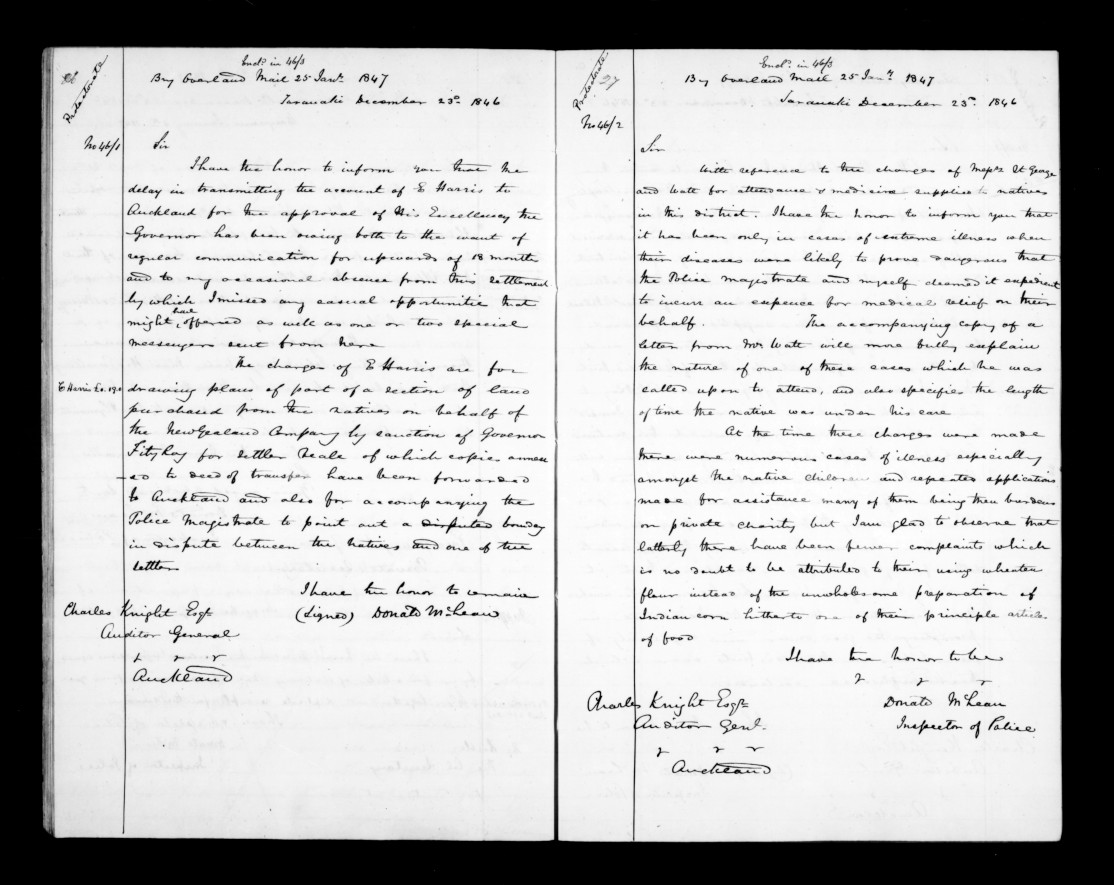 Encd. in 46/3
By Overland Mail 25 Jany. 1847
Taranaki December 23rd. 1846
No 46/1
Sir
I have the honor to inform you that the
delay in transmitting the account of E Harris to
Auckland for the approval of His Excellency the
Governor has been owing both to the want of
regular communication for upwards of 18 months
and to my occasional absence from this settlement
by which I missed any casual opportunities that
might have offered as well as one or two special
messengers sent from here
The charges of E Harris are for
E Harris
drawing plans of part of a section of land
purchased from the natives on behalf of
the New Zealand Company by sanction of Governor
FitzRoy for settler Neale of which copies annex
-ed to deed of transfer have been forwarded
to Auckland and also for accompanying the
Police Magistrate to point out a disputed bounday
in dispute between the Natives and one of the
settlers
I have the honor to remain
Charles Knight Esqre (signed) Donald McLean
Auditor General
Auckland
Encd. in 46/3
27
By Overland Mail 25 Jany. 1847
Taranaki December 23rd. 1846
No 46/2
Sir
With reference to the charges of Messrs St George
and Watt for attendance & medicine supplied to natives
in this district. I have the honor to inform you that
it has been only in cases of extreme illness when
their diseases were likely to prove dangerous that
the Police Magistrate and myself deemed it expedient
to incurr an expence for medical relief on their
behalf. The accompanying copy of a
letter from Mr Watt will more fully explain
the nature of one of these cases which he was
called upon to attend, and also specifies the length
of time the native was under his care
At the time these charges were made
there were numerous cases of illness especially
amongst the native children and repeated applications
made for assistance many of them being then burdens
on private charity but I am glad to observe that
latterly there have been fewer complaints which
is no doubt to be attributed to their using wheaten
flour instead of the unwholesome preparation of
Indian corn hitherto one of their principle articles
of food
I have the honor to be
Charles Knight Esqre Donald McLean
Auditor Genl. Inspector of Police
Auckland